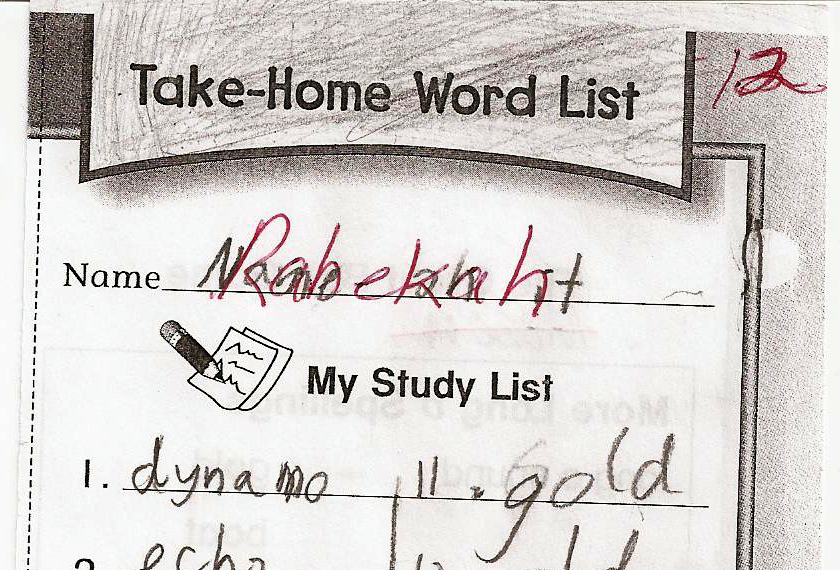 Take-Home Word List
12
Name Rabekah
My Study List
1. dynamo 11. gold
2. echo